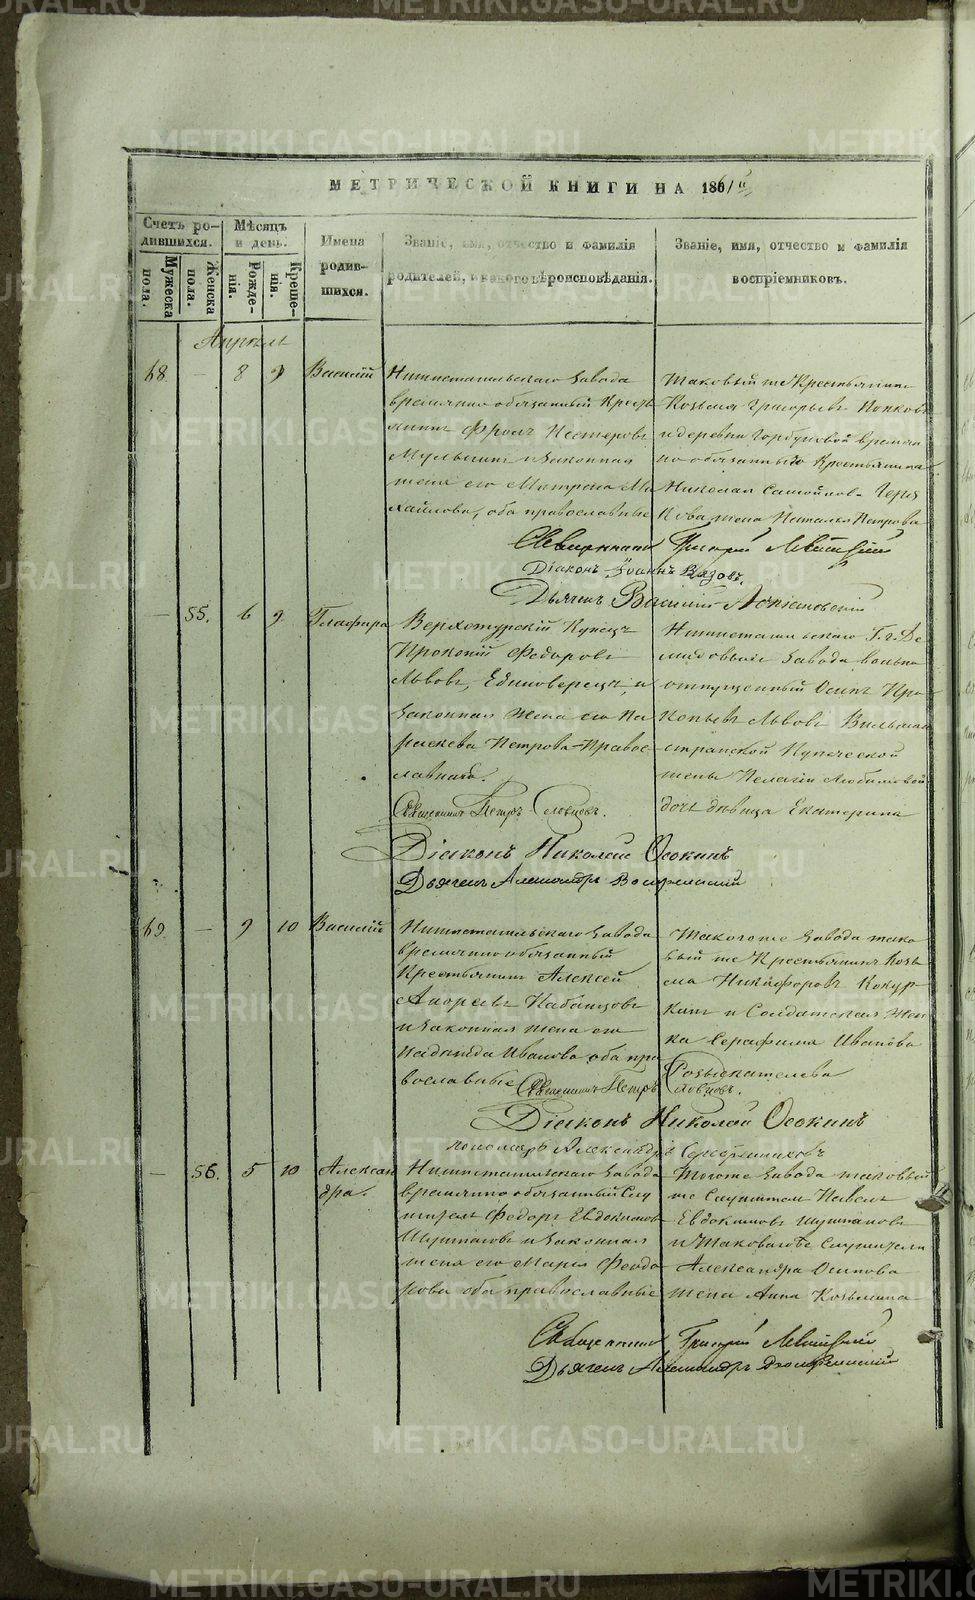 МЕТРИЧЕСКОЙ КНИГИ НА 1861/й
Счетъ ро-
дившихся.
Мѣсяцъ
и день.
Имена
родив-
шихся.
Званіе, имя, отчество и фамилія
родителей, и какого вѣроисповѣданія.
Званіе, имя, отчество и фамилія
воспріемниковъ.
Мужеска
пола.
Женска
пола.
Рожде-
нія.
Креще-
нія.
Апрель
68 — 8 9 Василій
Нижнетагильскаго завода
временно обязанный Кресть
янинъ Фролъ Нестеровъ
и законная
жена его Матрона Ми
хайлова, оба православные
Таковый же Крестьянинъ
Козьма Григорьевъ Попковъ
и деревни Горбуновой времен
но обязаннаго Крестьянина
Николая Самойлова
жена Наталья Петрова
Священникъ Григорій Левитскій
Діаконъ Іоаннъ Вязовъ.
Дьячекъ Василій
— 55. 6 9 Глафира
Верхотурскій Купецъ
Прокопій Федоровъ
Львовъ, Единоверецъ, и
законная жена его Па
раскева Петрова-Правос
лавная.
Нижнетагильскаго Г.г. Де
мидовыхъ завода вольно
отпущенный Осипъ Про
копьевъ Львовъ
Купеческой
жены Пелагіи Любимовой
дочь девица Екатерина
Священникъ Петръ Словцовъ.
Діаконъ Николай Осокинъ
Дьячекъ Александръ
69 — 9 10 Василій
Нижнетагильскаго завода
временно обязанный
Крестьянинъ Алексей
Андреевъ Кабанцовъ
и законная жена его
Надежда Иванова оба пра
вославные
Такогоже завода тако
вый же Крестьянинъ Козь
ма Никифоровъ Кокур
кинъ и Солдатская жен
ка Серафима Иванова
Розыскателева
Священникъ Петръ Словцовъ.
Діаконъ Николай Осокинъ
Пономарь Александръ Серебренниковъ
— 56. 5 10 Алексан
дра.
Нижнетагильскаго завода
временно обязанный Слу
житель Федоръ Евдокимовъ
Шушпановъ и законная
жена его Марія Федо
рова оба православные
Тогоже завода таковый
же Служитель Павелъ
Евдокимовъ Шушпановъ
и таковагоже Служителя
Александра Осипова
жена Анна Козьмина
Священникъ Григорій Левитскій
Дьячекъ Александръ
METRIKI.GASO-URAL.RU